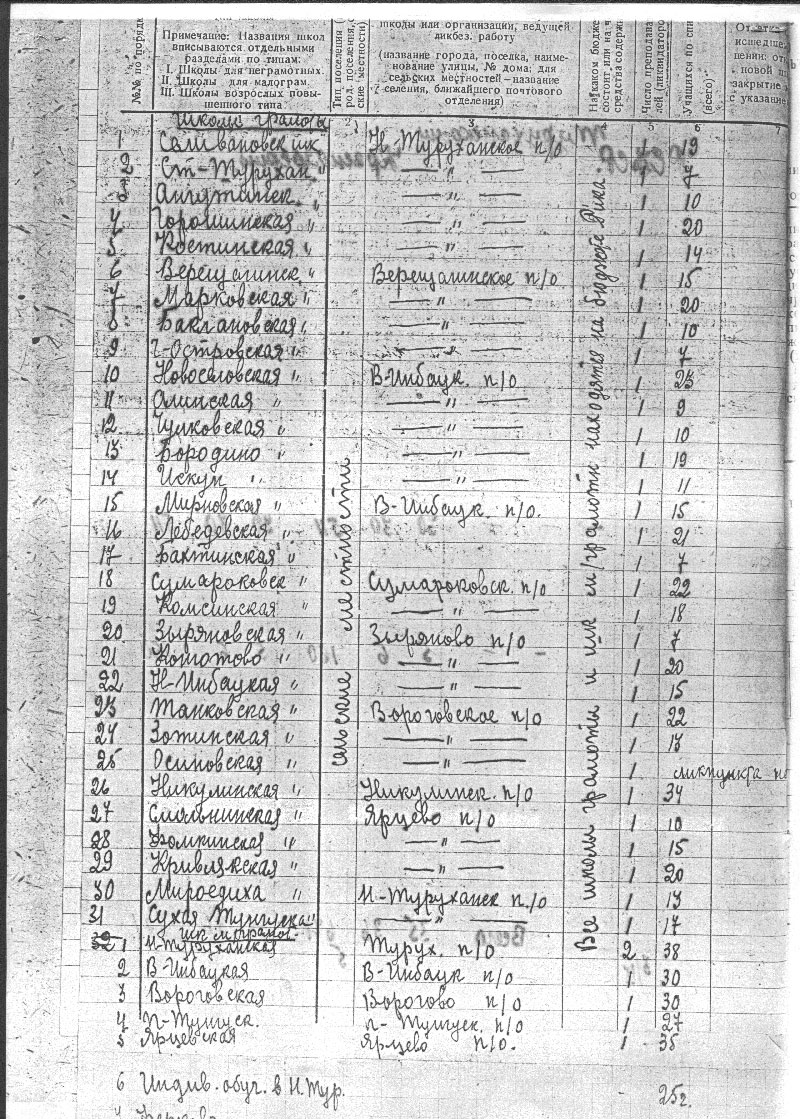 №№ по порядк
Примечание: Названия школ
вписываются отдельными
разделами по типам:
I. Школы для неграмотных.
II. Школы для малограм.
III. Школы возрослых повы-
шенного типа.
Тип поселения (
род. поселения,
ские местности)
школы или организации, ведущей
ликбез. работу
(название города, поселка, наиме-
нование улицы, № дома: для
сельских местностей—название
селения, ближайшего почтового
отделения)
На каком бюдже
состоит или на ч
средства содерж
Число преподава
лей (ликвидаторо
Учащихся по спи
(всего)
исшедше
новой
закрытие
с указани
2 3 5 6 7
Школы грамоты
1 Селивановск шк Н. Туруханское п/о 1 19
2 Ст-Турухан. " — " — 1 7
3 Ангутинск. " — " — 1 10
4 Горошинская " — " — 1 20
5 Костинская " — " — 1 14
6 Верещагинск. " Верещагинское п/о 1 15
7 Марковская " — " — 1 20
8 Баклановская " — " — 1 10
9 Г-Островская " — " — 1 7
10 Новоселовская " В-Инбацк. п/о 1 23
11 Алинская " — " — 1 9
12 Чулковская " — " — 1 10
13 Бородино " — " — 1 19
14 Искуп " — " — 1 11
15 Мирновская " В-Инбацк. п/о. 1 15
16 Лебедевская " 1 21
17 Бахтинская " 1 7
18 Сумароковск " Сумароковск. п/о 1 22
19 Комсинская " — " — 1 18
20 Зыряновская " Зыряново п/о 1 7
21 Канготово " — " — 1 20
22 Н-Инбацкая " — " — 1 15
23 Танковская " Вороговское п/о 1 22
24 Зотинская " — " — 1 13
25 Осиновская " — " — 1 ликпункта
26 Никулинская " Никулинск. п/о 1 34
27 Смольнинская " Ярцево п/о 1 10
28 Фомкинская " — " — 1 15
29 Кривлякская " — " — 1 20
30 Мироедиха " Н-Туруханск п/о 1 13
31 Сухая Тунгуска " — " — 1 17
шк м/грамот
1 Н-Туруханская Турух. п/о 2 38
2 В-Инбацкая В-Инбацк п/о 1 30
3 Вороговская Ворогово п/о 1 30
4 П-Тунгуск. П-Тунгуск. п/о 1 27
5 Ярцевская Ярцево п/о. 1 35
6 Индив. обуч. в Н.Тур. 25
сельские местности
Все школы грамоты и шк м/грамотн находятся на бюджете Рика